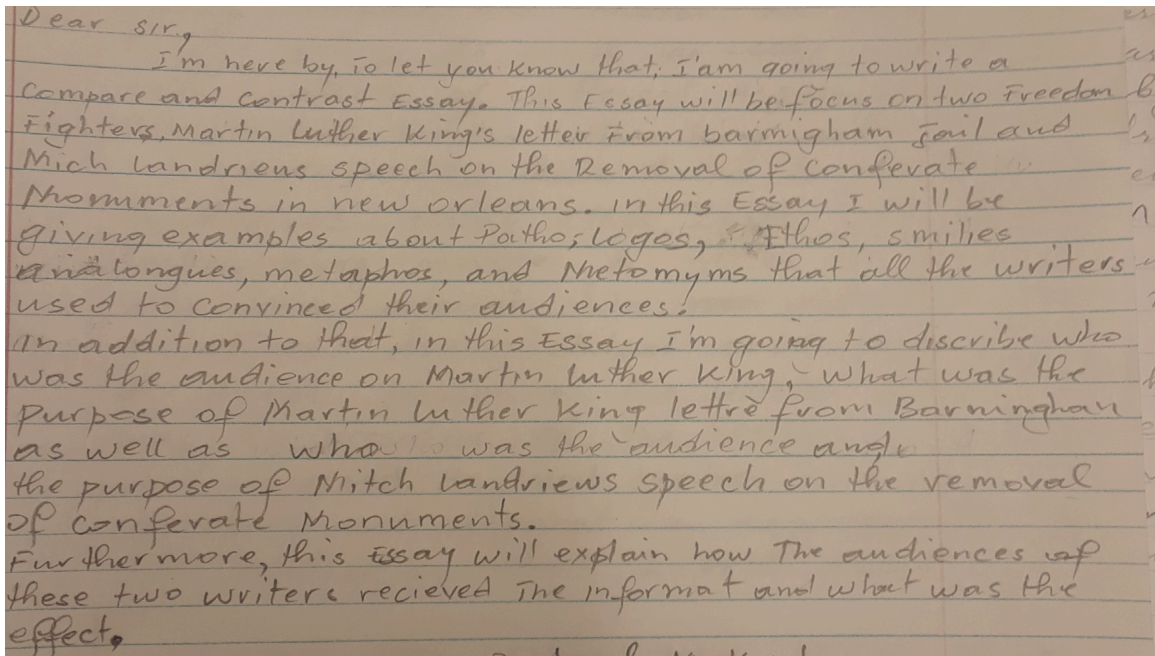 Dear Sir,
I'm here by, To let you know that, I'am going to write a
Compare and Contrast Essay. This Essay will be focus on two Freedom
Fighters, Martin Luther King's letter From barmigham Jail and
Mich Landrieus speech on the Removal of Conferate
Monuments in new orleans. in this Essay I will be
giving examples about Patho, Logos, Ethos, smilies
analongues, metaphos, and Metomyms that all the writers
used to convinced their audiences.
in addition to that, in this Essay I'm going to discribe who
was the audience on Martin Luther King, what was the
purpose of Martin Luther King lettre from Barninghan
as well as who was the audience and
the purpose of Mitch Landriews speech on the removal
of conferate Monuments.
Furthermore, this Essay will explain how The audiences of
these two writers recieved The informat and what was the
effect,